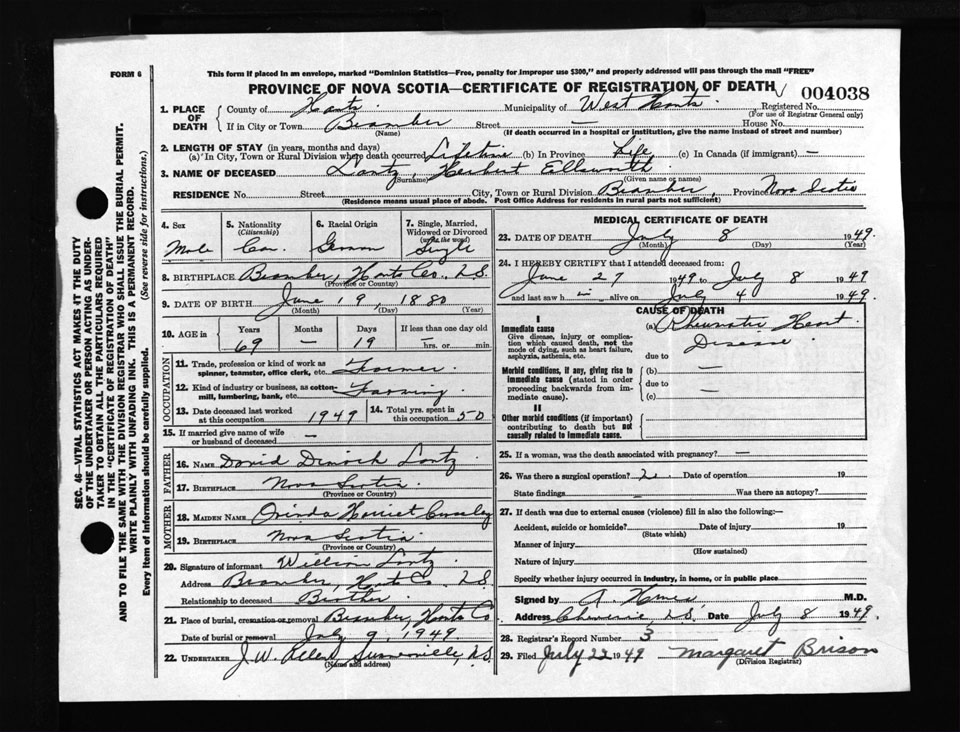 FORM 6
This form if placed in an envelope, marked "Dominion Statistics—Free, penalty for improper use $300," and properly addressed will pass through the mail "FREE"
PROVINCE OF NOVA SCOTIA—CERTIFICATE OF REGISTRATION OF DEATH 004038
1. PLACE OF DEATH
County of Hants Municipality of West Hants Registered No.
(For use of Registrar General only)
If in City or Town Bramber Street — House No.
(Name) (If death occurred in a hospital or institution, give the name instead of street and number)
2. LENGTH OF STAY (in years, months and days)
(a) In City, Town or Rural Division where death occurred Lifetime (b) In Province Life (c) In Canada (if immigrant) —
3. NAME OF DECEASED Lantz, Herbert Ellsworth
(Surname) (Given name or names)
RESIDENCE No. Street City, Town or Rural Division Bramber, Province Nova Scotia
(Residence means usual place of abode. Post Office Address for residents in rural parts not sufficient)
4. Sex Male
5. Nationality (Citizenship) Can.
6. Racial Origin German
7. Single, Married, Widowed or Divorced (write the word) Single
8. BIRTHPLACE Bramber, Hants Co. N.S.
(Province or Country)
9. DATE OF BIRTH June 19, 1880
(Month) (Day) (Year)
10. AGE in Years Months Days If less than one day old
69 — 19 — hrs. or min.
OCCUPATION
11. Trade, profession or kind of work as spinner, teamster, office clerk, etc. Farmer
12. Kind of industry or business, as cotton-mill, lumbering, bank, etc. Farming
13. Date deceased last worked at this occupation 1949 14. Total yrs. spent in this occupation 50
15. If married give name of wife or husband of deceased —
FATHER
16. NAME David Dimock Lantz
17. BIRTHPLACE Nova Scotia
(Province or Country)
MOTHER
18. MAIDEN NAME Orinda Harriet
19. BIRTHPLACE Nova Scotia
(Province or Country)
20. Signature of informant William Lantz
Address Bramber, Hants Co. N.S.
Relationship to deceased Brother
21. Place of burial, cremation or removal Bramber, Hants Co
Date of burial or removal July 9, 1949
22. UNDERTAKER J.W. Summerville, N.S.
(Name and address)
MEDICAL CERTIFICATE OF DEATH
23. DATE OF DEATH July 8 1949.
(Month) (Day) (Year)
24. I HEREBY CERTIFY that I attended deceased from:
June 27 1949 to July 8 1949
and last saw h im alive on July 4 1949.
CAUSE OF DEATH
I
Immediate cause
Give disease, injury or complication which caused death, not the mode of dying, such as heart failure, asphyxia, asthenia, etc.
(a) Rheumatic Heart Disease
due to
Morbid conditions, if any, giving rise to immediate cause (stated in order proceeding backwards from immediate cause).
(b) —
due to —
(c)
II
Other morbid conditions (if important) contributing to death but not causally related to immediate cause.
25. If a woman, was the death associated with pregnancy? —
26. Was there a surgical operation? Date of operation 19
State findings — Was there an autopsy?
27. If death was due to external causes (violence) fill in also the following:—
Accident, suicide or homicide? Date of injury 19
(State which)
Manner of injury
(How sustained)
Nature of injury
Specify whether injury occurred in industry, in home, or in public place
Signed by M.D.
Address Cheverie, N.S. Date July 8 1949.
28. Registrar's Record Number 3
29. Filed July 22 1949 Margaret Brison
(Division Registrar)
SEC. 46—VITAL STATISTICS ACT MAKES IT THE DUTY
OF THE UNDERTAKER OR PERSON ACTING AS UNDER-
TAKER TO OBTAIN ALL THE PARTICULARS REQUIRED
IN THE "CERTIFICATE OF REGISTRATION OF DEATH"
AND TO FILE THE SAME WITH THE DIVISION REGISTRAR WHO SHALL ISSUE THE BURIAL PERMIT.
WRITE PLAINLY WITH UNFADING INK. THIS IS A PERMANENT RECORD.
Every item of information should be carefully supplied. (See reverse side for instructions.)